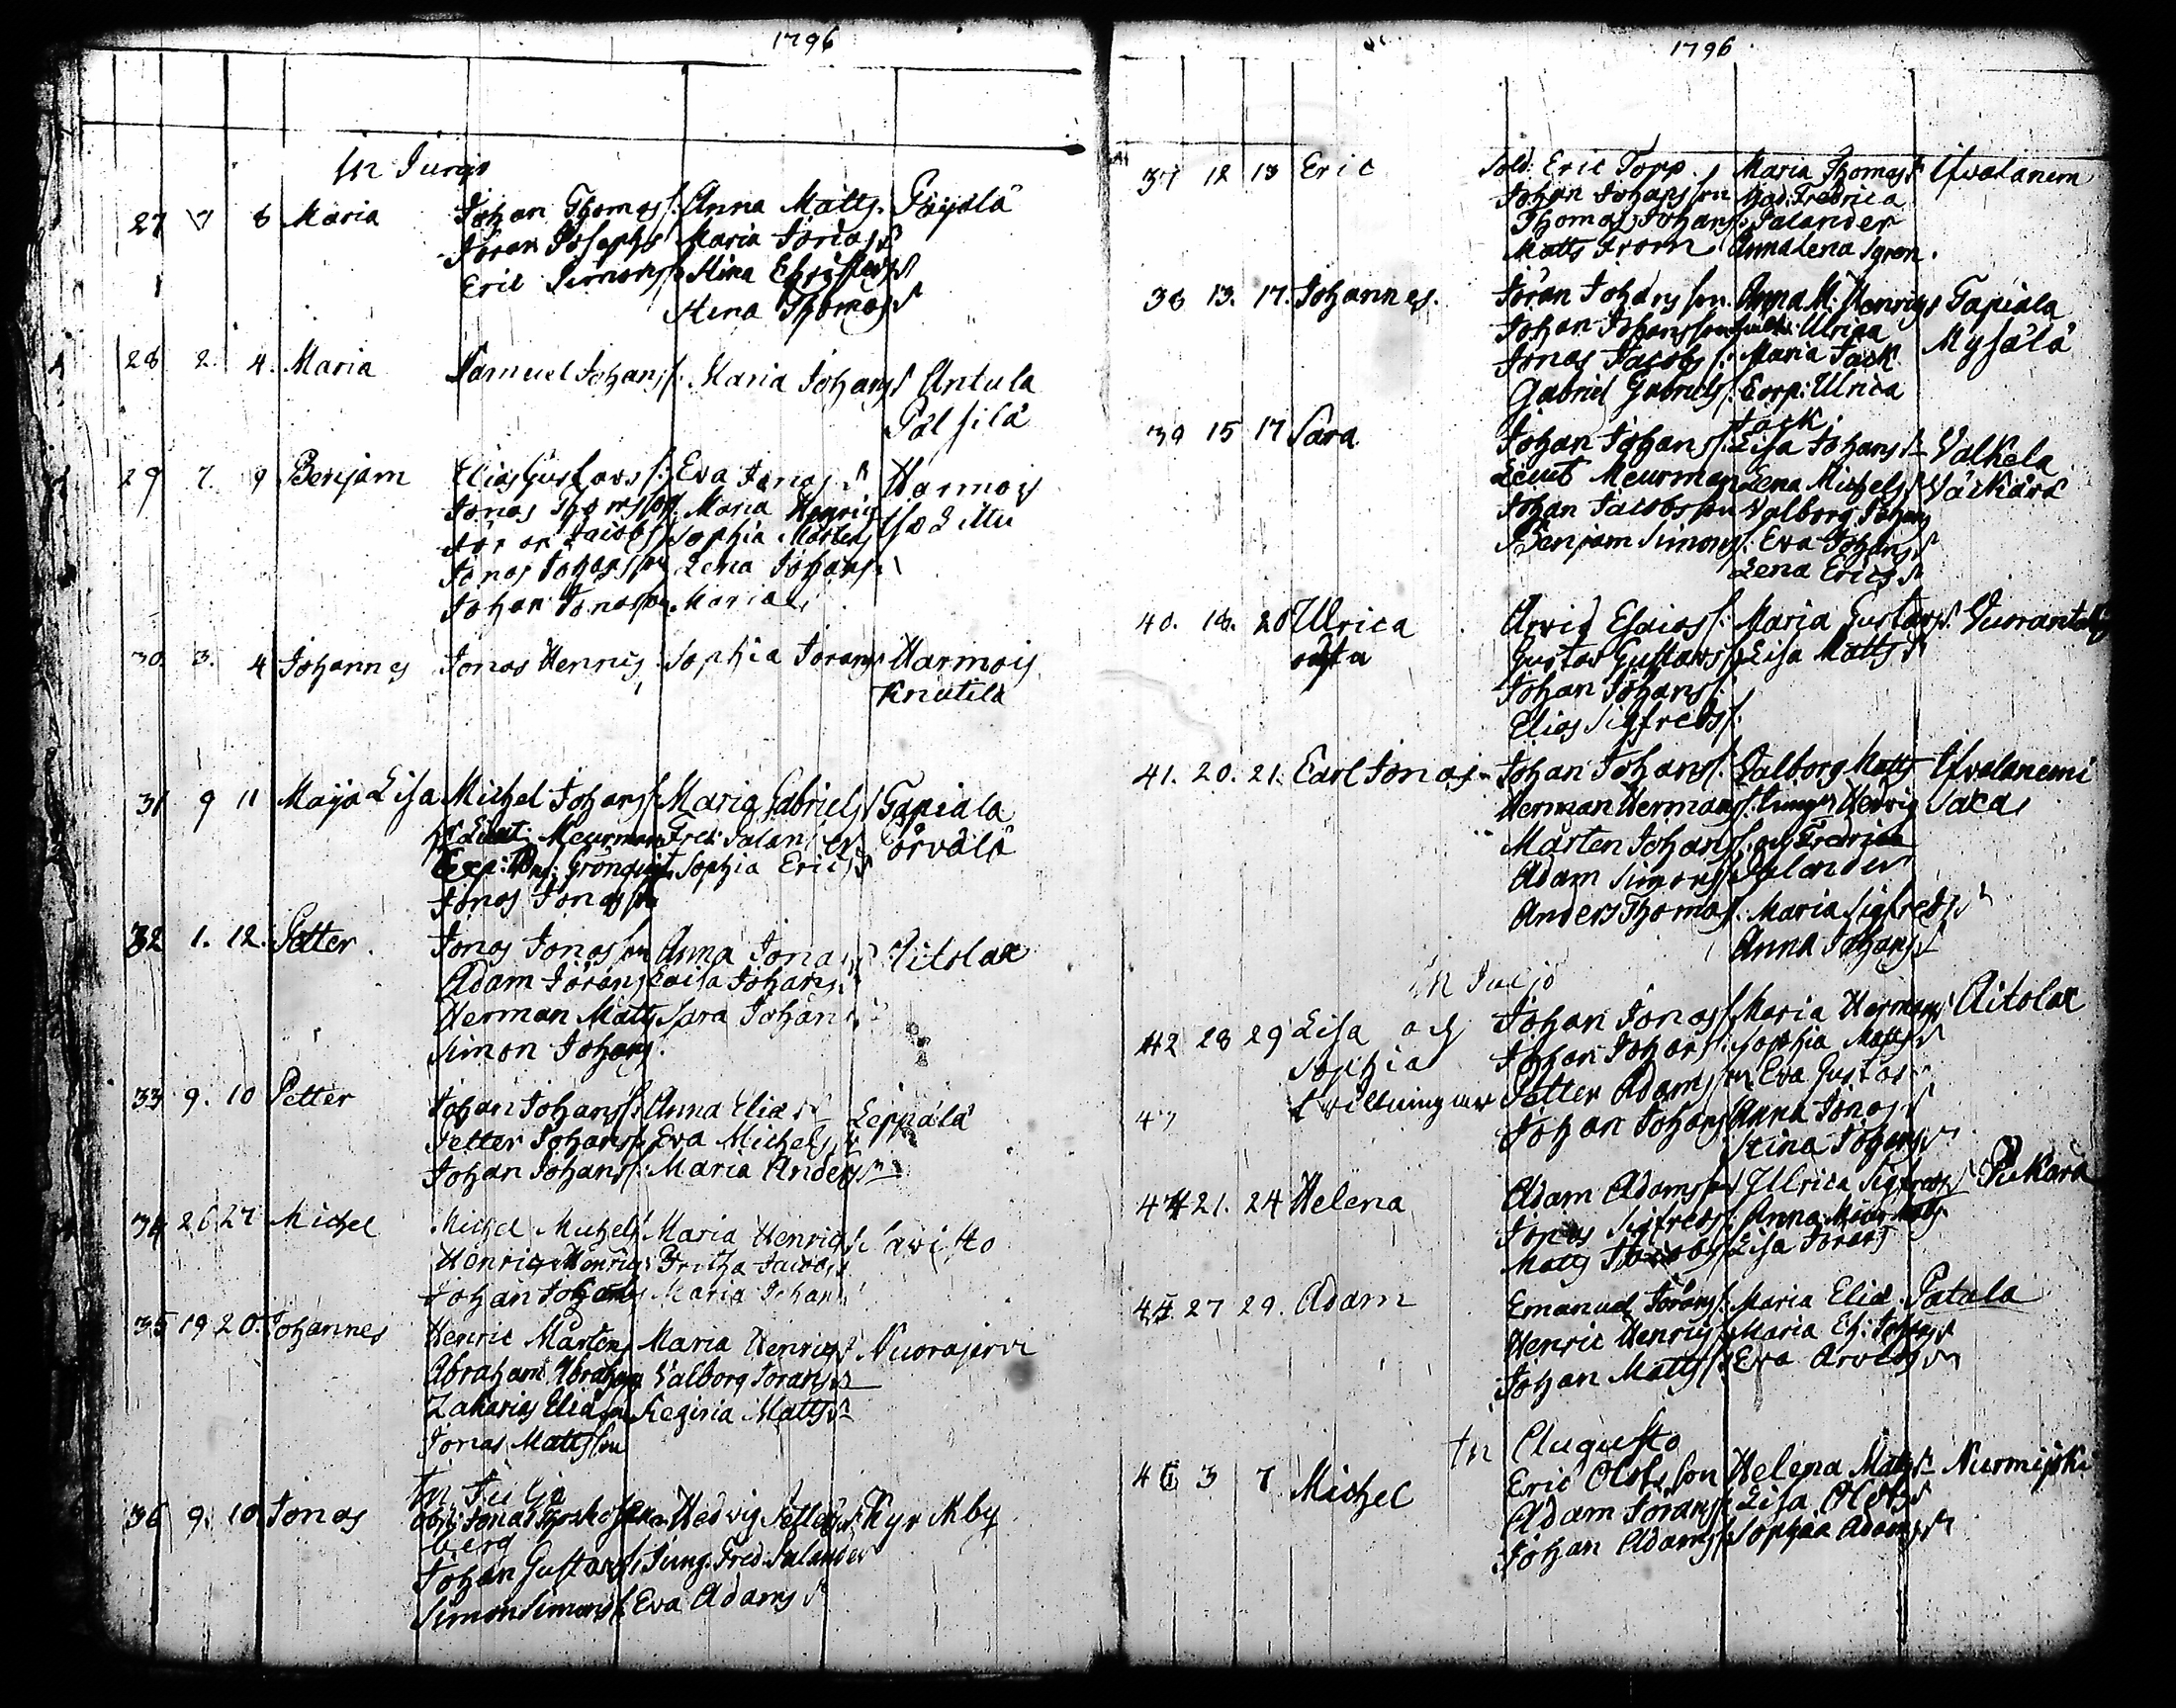 1796
In Junyo
27 7 8 Maria Johan Thomas: Anna Matts. Päjälä
Jöran Josephs Maria Jöras
Eric Simons: Stina Christers
Stina Thomas
28 2. 4. Maria Samuel Johans: Maria Johans Antula
Pälsilä
29 7. 9 Benjam Elias Gustavs: Eva Jonas Harmois
Jonas Thomsson Maria Henrics
Jöran Jacobs Sophia Mårtens
Jonas Johansson Lena Johans
Johan Jonasson Maria
30 3. 4 Johannes Jonas Henrics Sophia Jörans Harmois
Knutila
31 9 11 Maja Lisa Michel Johans Maria Gabriels Tapiala
Lieut: Meurman Fred: Salander Örvälä
Grönqvist Sophia Erics
Jonas Jonasson
32 1. 12. Petter Jonas Jonasson Anna Jonas Aitolax
Adam Jörans Lovisa Johans
Herman Matts Sara Johans
Simon Johans.
33 9. 10 Petter Johan Johans: Anna Elias Leppälä
Petter Johans Eva Michels
Johan Johans: Maria Anders
34 26 27 Michel Michel Michels Maria Henrics
Henric Henrics Jacobs
Johan Johans Maria Johans
35 19 20. Johannes Henric Mårtens Maria Henrics Nuorajervi
Abraham Abrahams Valborg Jörans
Zakarias Eliasson Regina Matts
Jonas Mattsson
In Julio
36 9. 10 Jonas Jonas Hedvig Petters Kyrkby
berg
Johan Gustavs: Jung. Fred. Salander
Simon Simons Eva Adams
1796
37 12 13 Eric Sold: Eric Torp. Maria Thomas Ifvalanem
Johan Johansson Mad. Fredrica
Thomas Johans: Salander
Matts From Anna Lena Sgren.
38 13. 17. Johannes. Jöran Johansson. Anna M: Henrics Tapiala
Johan Johansson Ulrica Mysälä
Jonas Jacobs: Maria Tack
Gabriel Gabriels: Corp: Ulrica
Tack
39 15 17 Sara Johan Johans: Lisa Johans Valkela
Lieut Meurman Lena Michels Väckärä
Johan Jacobsson Valborg Johans
Benjam Simons: Eva Johans
Lena Erics
40. 18. 20 Ulrica Arvid Esaias: Maria Gustavs. Vuorantaka
oäkta Gustav Gustavs Lisa Matts
Johan Johans:
Elias Sigfreds:
41. 20. 21. Carl Jonas Johan Johans: Valborg Matts Ifvalanemi
Herman Hermans: Jungfr Hedvig Saca
Mårten Johans: och Fredrica
Adam Simons Salander
Anders Thomas: Maria Sigfreds
Anna Johans
In Juljo
42 28 29 Lisa och Johan Jonas: Maria Hermans Aitolax
Sophia Johan Johans: Sophia Matts
43 tvillningar Petter Adamsson Eva Gustas
Johan Johans Anna Jonas
Stina Johans
44 21. 24 Helena Adam Adamsson Ulrica Sigfreds Pukara
Jonas Sigfreds: Anna
Matts Jacobs: Lisa Jörans
45 27 29. Adam Emanuel Jörans: Maria Elia Patala
Henric Henrics Maria El: Johans
Johan Matts: Eva Arvids
In Augusto
46 3 7 Michel Eric Olofsson Helena Matts Nurmijoki
Adam Jörans: Lisa Olofs
Johan Adams: Sophia Adams